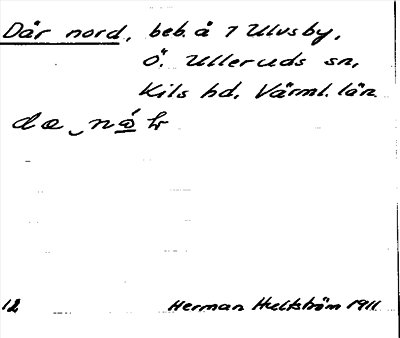 Där nord, beb. å 7 Ulvsby,
Ö. Ulleruds sn,
Kils hd, Värml. län.
12 Herman Hultström 1911